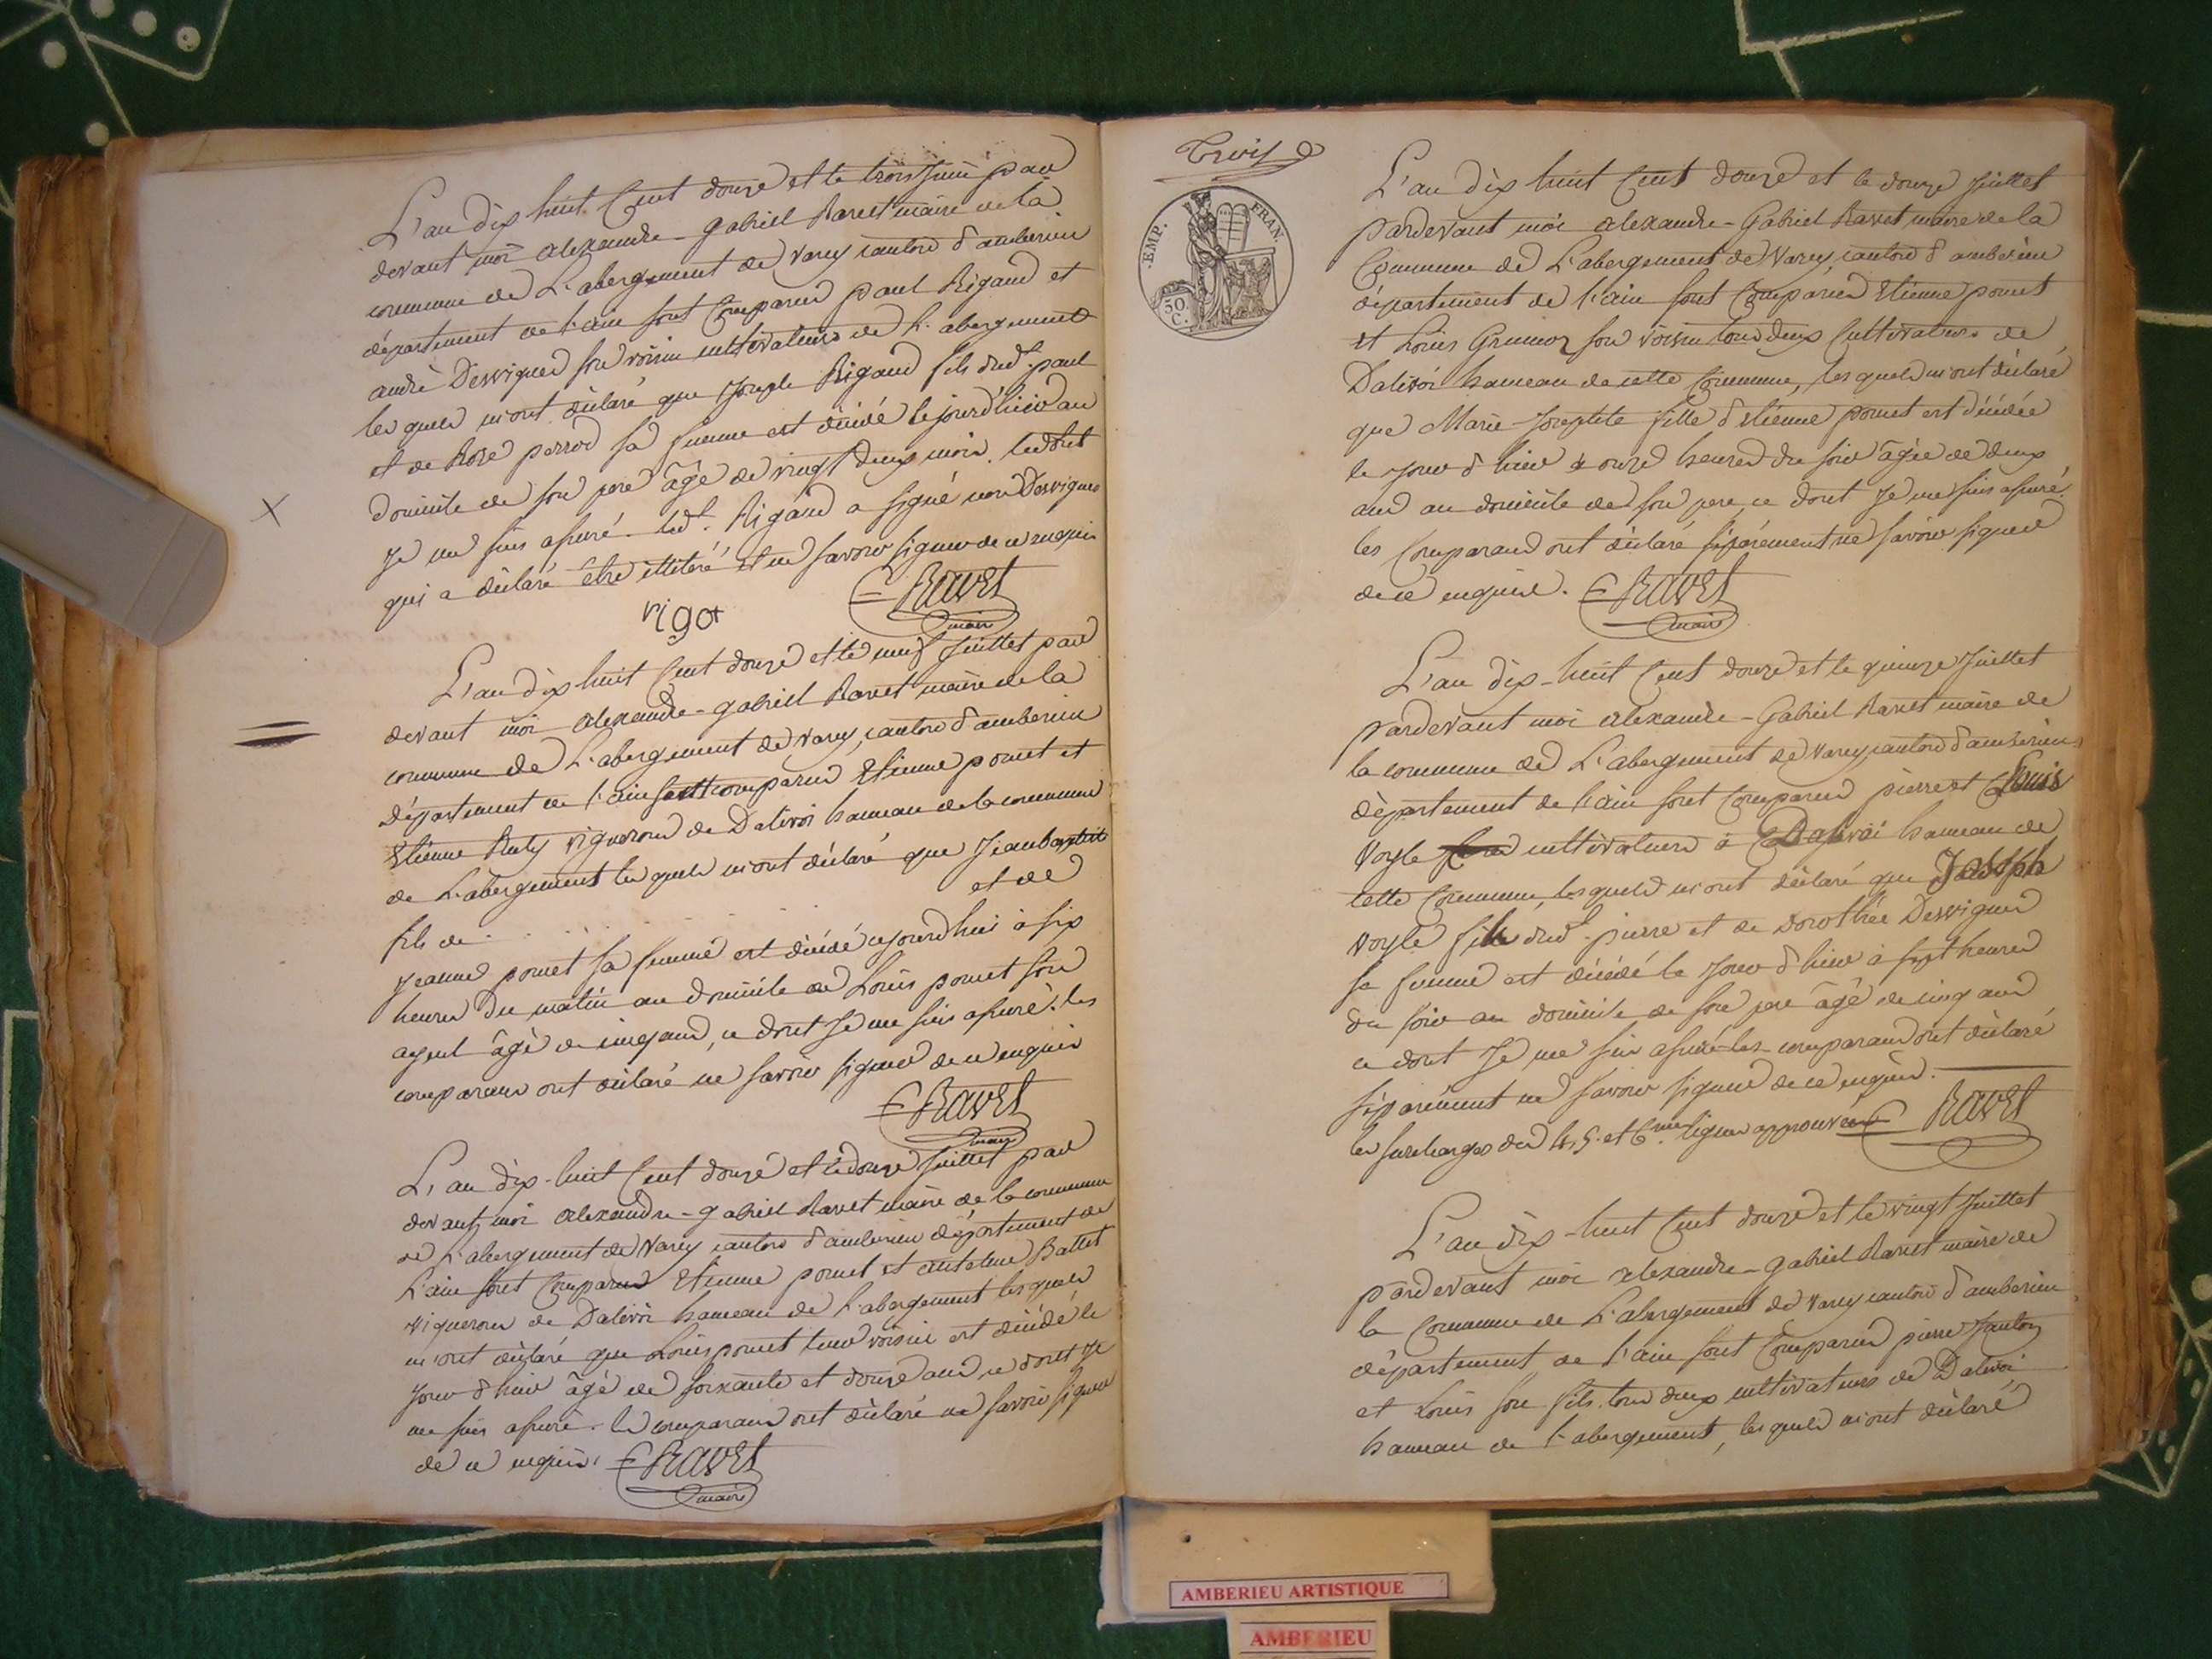 L'an dix huit Cent douze et le trois Juin par
devant moi alexandre-gabriel Ravet maire de la
commune de L'abergement de Varey canton d'amberieu
département de l'ain sont Comparus paul Rigaud et
andré Desvignes son voisin cultivateurs de l'abergement
les quels m'ont déclaré que Joseph Rigaud fils dud.t paul
et de Rose perrod sa femme est décédé le jourd'huid au
domicile de son pere âgé de vingt deux mois. ce dont
Je me suis assuré. led.t Rigaud a signé non Desvignes
qui a déclaré être illiteré et ne savoir signer de ce enquis
rigot
Ravet
maire
L'an dix huit Cent douze et le neuf Juillet par
devant moi alexandre-gabriel Ravet maire de la
commune de L'abergement de Varey, canton d'amberieu
département de l'ain sont comparus Etienne pomet et
Etienne Ruty vignerons de Dalivoi hameau de la commune
de L'abergement les quels m'ont déclaré que Jeanbaptiste
fils de . . . . . et de
Jeanne pomet sa femme est décédé cejourdhui à six
heures du matin au domicile de Louis pomet son
ayeul âgé de cinq ans, ce dont Je me suis assuré. les
comparans ont déclaré ne savoir signer de ce enquis
Ravet
maire
L'an dix-huit Cent douze et le douze Juillet par
devant moi alexandre-gabriel Ravet maire de la commune
de L'abergement de Varey canton d'amberieu département de
L'ain sont Comparus Etienne pomet et Ballet
vignerons de Dalivoi hameau de l'abergement les quels
m'ont déclaré que Louis pomet leur voisin est décédé le
Jour d'hui âgé de soixante et douze ans, ce dont Je
me suis assuré. les comparans ont déclaré ne savoir signer
de ce enquis. Ravet
maire
Trois
EMP. FRAN.
50
C.
L'an dix huit Cent douze et le douze Juillet
pardevant moi alexandre-Gabriel Ravet maire de la
Commune de L'abergement de Varey, canton d'amberieu
département de l'ain sont Comparus Etienne pomet
et Louis son voisin tous deux Cultivateurs de
Dalivoi hameau de cette Commune, les quels m'ont déclaré
que Marie-Josephte fille d'Etienne pomet est décédée
le Jour d'hui à onze heures du soir âgée de deux
ans au domicile de son pere, ce dont Je me suis assuré.
les Comparans ont déclaré séparément ne savoir signer
de ce enquis. Ravet
maire
L'an dix-huit Cent douze et le quinze Juillet
pardevant moi alexandre-Gabriel Ravet maire de
la commune de L'abergement de Varey canton d'amberieu
département de l'ain sont Comparus pierre et Louis
Voyle cultivateurs à Dalivoi hameau de
cette Commune, les quels m'ont déclaré que Joseph
Voyle fils dud.t pierre et de dorothée Desvignes
sa femme est décédé le Jour d'hui à sept heures
du soir au domicile de son pere âgé de cinq ans
ce dont Je me suis assuré les comparans ont déclaré
séparément ne savoir signer de ce enquis.
les surcharges des 4, 5. et 6.me lignes approuvées Ravet
L'an dix-huit Cent douze et le vingt Juillet
pardevant moi alexandre-gabriel Ravet maire de
la Commune de L'abergement de Varey canton d'amberieu
département de l'ain sont Comparus pierre
et Louis son fils tous deux cultivateurs de Dalivoi
hameau de l'abergement, les quels m'ont déclaré
AMBERIEU ARTISTIQUE
AMBERIEU